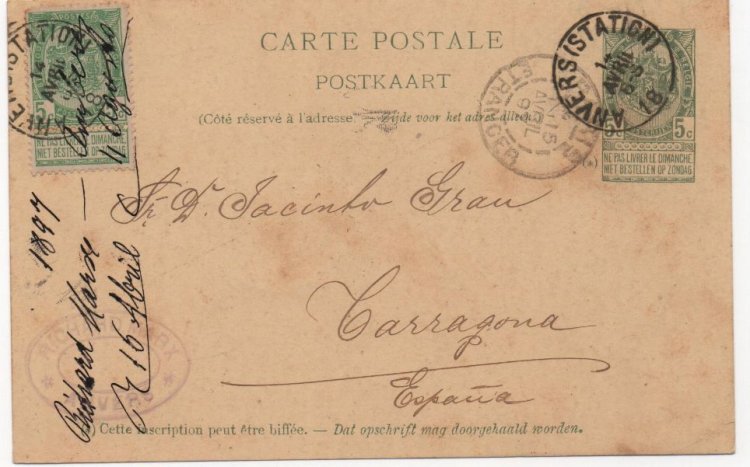 CARTE POSTALE
POSTKAART
(Côté réservé à l'adresse Zijde voor het adres alleen)
ANVERS (STATION)
14
AVRIL
18
5c
NE PAS LIVRER LE DIMANCHE
NIET BESTELLEN OP ZONDAG
ETRANGER
15
AVRIL
(STATION)
14
AVRIL
5
NE PAS LIVRER LE DIMANCHE
NIET BESTELLEN OP
Sr. D. Jacinto Grau
Tarragona
España
1897
Richard Marx
16 Abril
Cette inscription peut être biffée. — Dat opschrift mag doorgehaald worden.